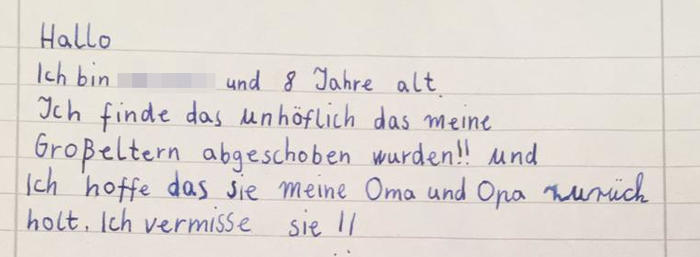 Hallo
Ich bin und 8 Jahre alt.
Ich finde das unhöflich das meine
Großeltern abgeschoben wurden!! und
Ich hoffe das sie meine Oma und Opa zurück
holt. Ich vermisse sie !!